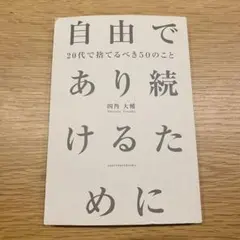 自由で
20代で捨てるべき50のこと
あり続
四角 大輔
けるた
めに